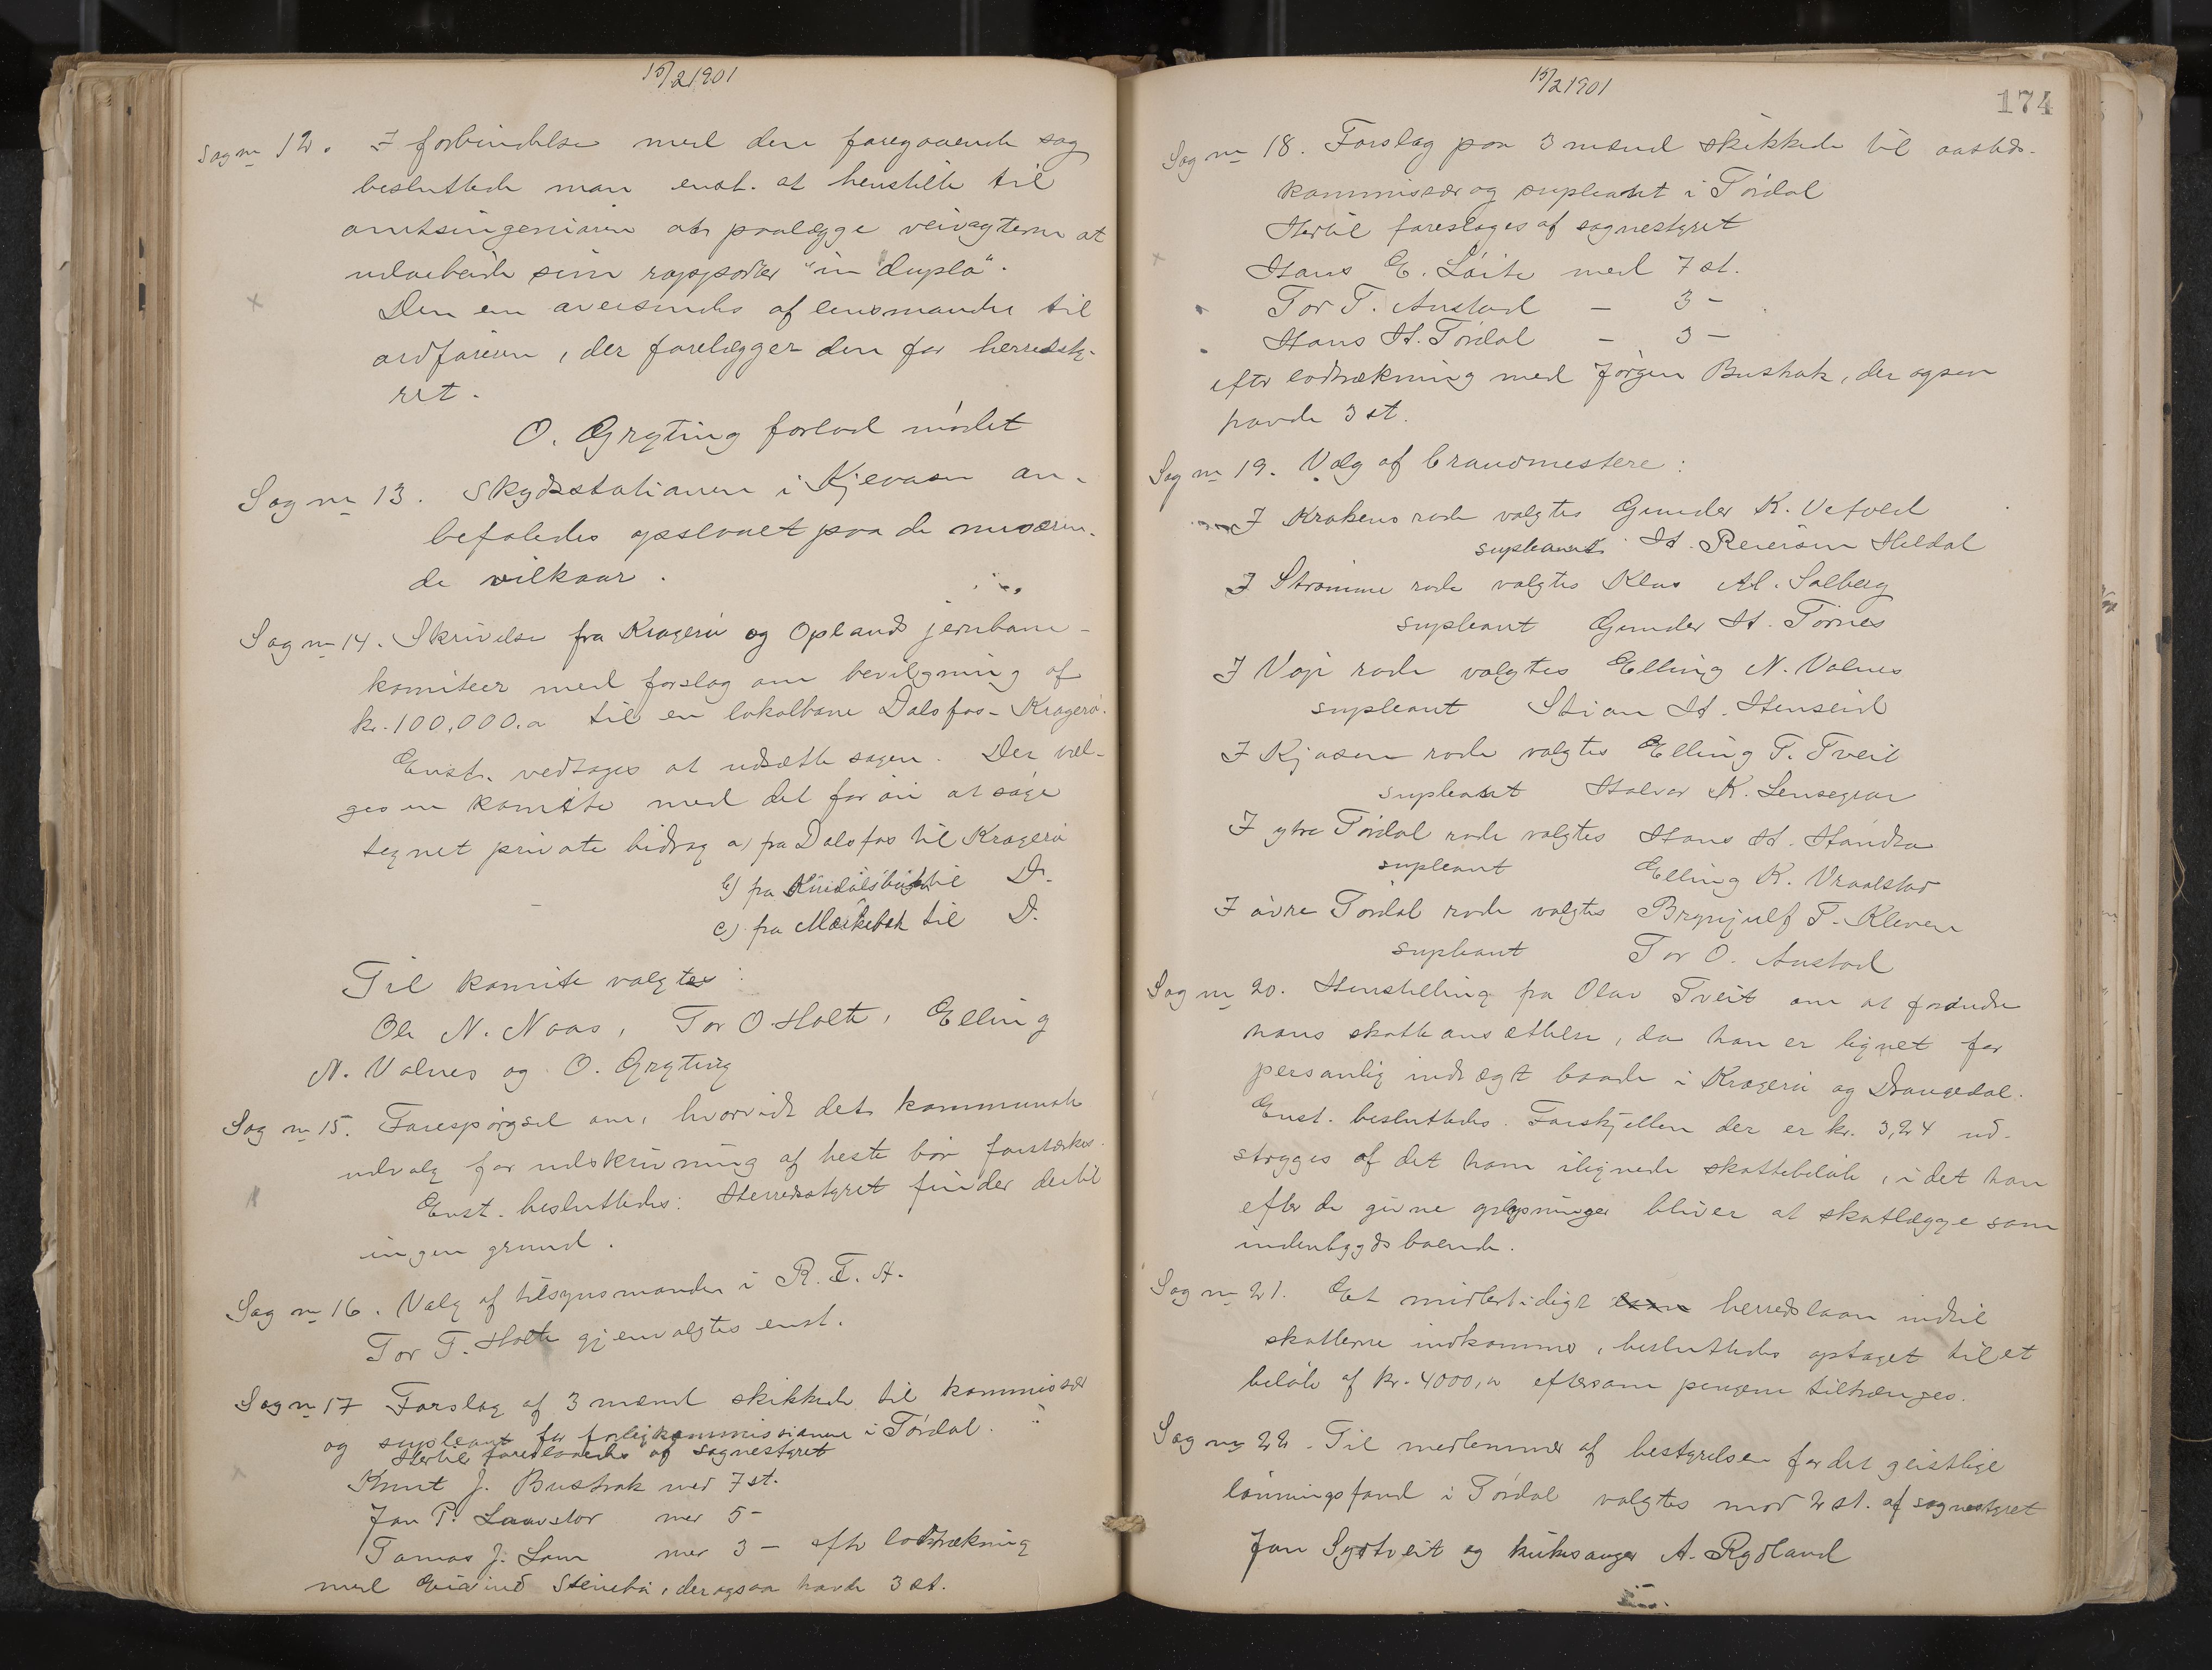 15/2 1901
Sag nr 12. I forbindelse med den foregaaende sag
besluttede man enst. at henstille til
amtsingeniøren at paalægge veivogterne at
udarbeide sine rapporter "in duplo".
Den ene oversendes af lensmanden til
ordføreren, der forelægger den for herredsty-
ret.
O. Gryting forlod mødet
Sag nr 13. Skydsstationen i Kjevasen an-
befaledes opslaaet paa de nuværen-
de vilkaar.
Sag nr 14. Skrivelse fra Kragerø og Oplands jernbane-
komiteer med forslag om bevilgning af
kr. 100,000.00 til en lokalbane Dalsfos-Kragerø.
Enst. vedtoges at udsætte sagen. Der væl-
ges en komite med det for øie at søge
tegnet private bidrag a) fra Dalsfos til Kragerø
b) fra til Do.
c) fra Mærkebæk til D.
Til komite valgtes:
Ole N. Naas, Tor O Holte, Elling
N. Valnes og O. Gryting
Sag nr 15. Forespørgsel om, hvorvidt det kommunale
udvalg for udskrivning af heste bør forstærkes.
Enst. besluttedes: Herredsstyret finder dertil
ingen grund.
Sag nr 16. Valg af tilsynsmænder i R. T. A.
Tor T. Holte gjenvalgtes enst.
Sag nr 17 Forslag af 3 mænd skikkede til kommissær
og supleant for forligkommissionen i Tørdal.
Hertil foresloaedes af sognestyret
Knut J. Bustrak med 7 st.
Jan P. Laavstor med 5 -
Tomas J. Lom med 3 - efter lodtrækning
med Eivind Steinebø, der ogsaa havde 3 st.
15/2 1901
174
Sag nr 18. Forslag paa 3 mænd skikkede til aasteds-
kommissær og supleant i Tørdal
Hertil foreslages af sognestyret
Hans E. Løite med 7 st.
Tor T. Austad - 3 -
Hans H. Tørdal - 3 -
efter lodtrækning med Jørgen Bustrak, der ogsaa
havde 3 st.
Sag nr 19. Valg af brandmestere:
I Krokens rode valgtes Gunder K. Vefald
supleant H. Reiersen Heldal
I Strømme rode valgtes Klas Al. Solberg
supleant Gunder H. Tørnes
I Vøje rode valgtes Elling N. Valnes
supleant Stian H. Henseid
I Kjosen rode valgtes Elling T. Tveit
supleant Halvor K. Lensegrav
I ytre Tørdal rode valgtes Hans H.
supleant Elling K. Vraalstad
I øvre Tørdal rode valgtes Brynjulf T. Kleven
supleant Tor O. Austad
Sag nr 20. Henstilling fra Olav Tveit om at forandre
hans skatteansættelse, da han er lignet for
personlig indtægt baade i Kragerø og Drangedal.
Enst. besluttedes. Forskjellen der er kr. 3,24 ud-
stryges af det ham ilignede skattebeløb, idet han
efter de givne oplysninger bliver at skatlægge som
indenbygdsboende.
Sag nr 21. Et midlertidigt herredslaan indtil
skatterne indkommer, besluttedes optaget til et
beløb af kr. 4000,00 eftersom pengene tiltrænges.
Sag nr 22. Til medlemmer af bestyrelsen for det geistlige
lønningsfond i Tørdal valgtes mod 2 st. af sognestyret
Jan Sydtveit og kirkesanger A. Rydland